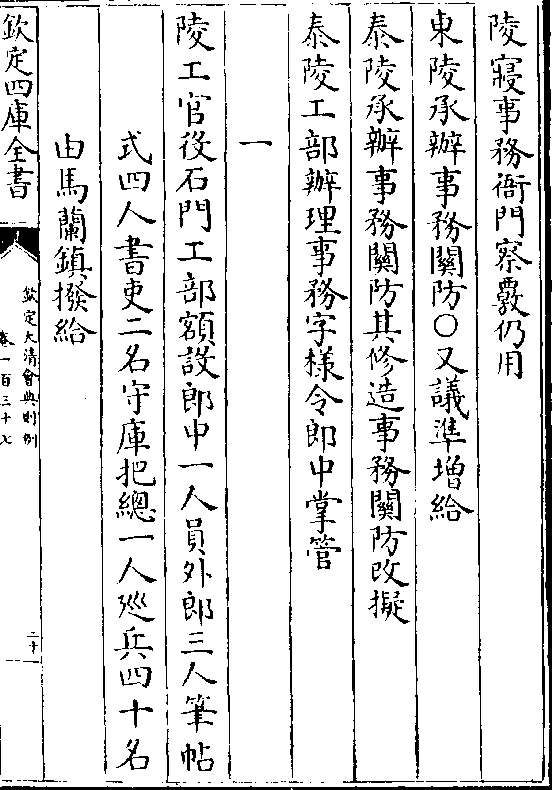 陵寢事務衙門察覈仍用
東陵承辦事務關防○又議準增給
泰陵承辦事務關防其修造事務關防改擬
泰陵工部辦理事務字樣令郎中掌管
一
陵工官役石門工部額設郎中一人員外郎三人筆帖
式四人書吏二名守庫把總一人廵兵四十名
由馬蘭鎮撥給
欽定四庫全書
欽定大清會典則例
卷一百三十七
二十